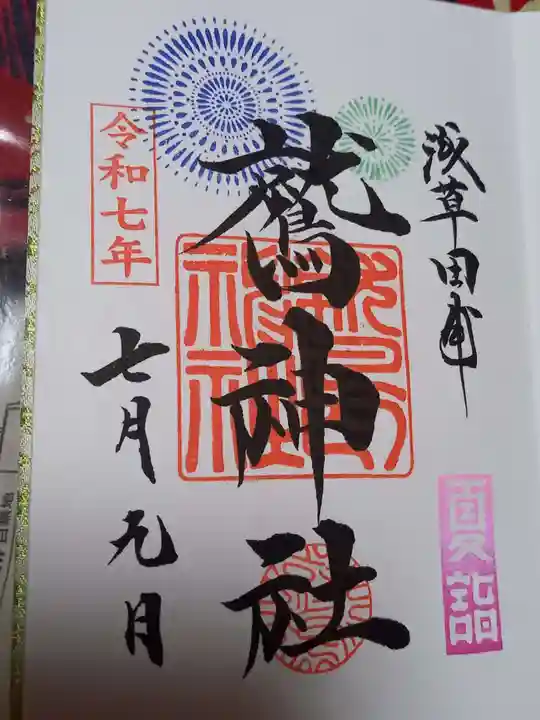 浅草田甫
夏詣
鷲神社
令和七年
七月九日